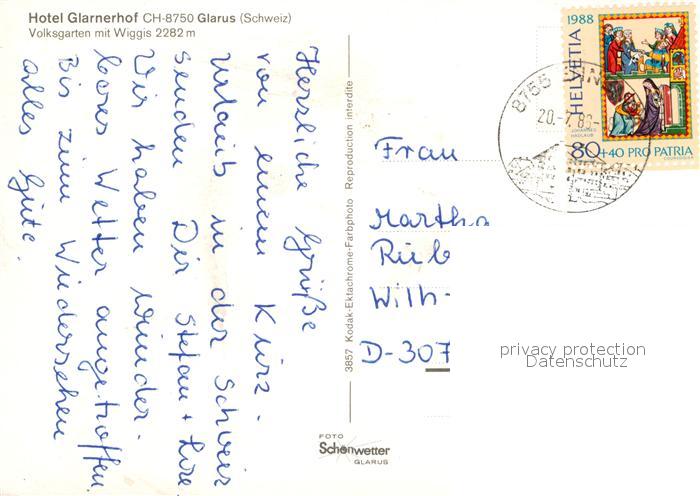 Hotel Glarnerhof CH-8750 Glarus (Schweiz)
Volksgarten mit Wiggis 2282 m
Herzliche Grüße
von einem Kurz-
urlaub in der Schweiz
senden Dir Stefan +
Wir haben wunder-
bares Wetter angetroffen.
Bis zum Wiedersehen
alles Gute.
3857 Kodak-Ektachrome-Farbphoto Reproduction interdite
FOTO
Schönwetter
GLARUS
1988
HELVETIA
JOHANNES
HADLAUB
80+40 PRO PATRIA
8755
20.-7.88-
Frau
Martha
Rüb
Wilh-
D-307
privacy protection
Datenschutz